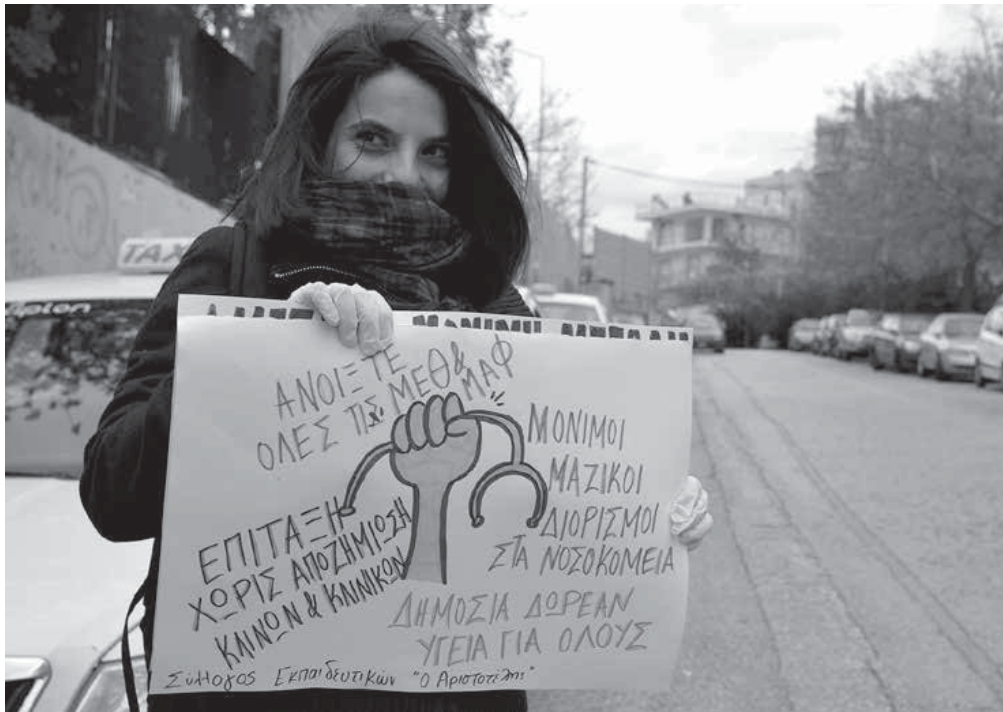 TAXI
ΑΝΟΙΞΤΕ
ΟΛΕΣ ΤΙΣ ΜΕΘ &
ΜΑΦ
ΜΟΝΙΜΟΙ
ΜΑΖΙΚΟΙ
ΔΙΟΡΙΣΜΟΙ
ΣΤΑ ΝΟΣΟΚΟΜΕΙΑ
ΕΠΙΤΑΞΗ
ΧΩΡΙΣ ΑΠΟΖΗΜΙΩΣΗ
ΚΛΙΝΩΝ & ΚΛΙΝΙΚΩΝ
ΔΗΜΟΣΙΑ ΔΩΡΕΑΝ
ΥΓΕΙΑ ΓΙΑ ΟΛΟΥΣ
Σύλλογος Εκπαιδευτικών "Ο Αριστοτέλης"